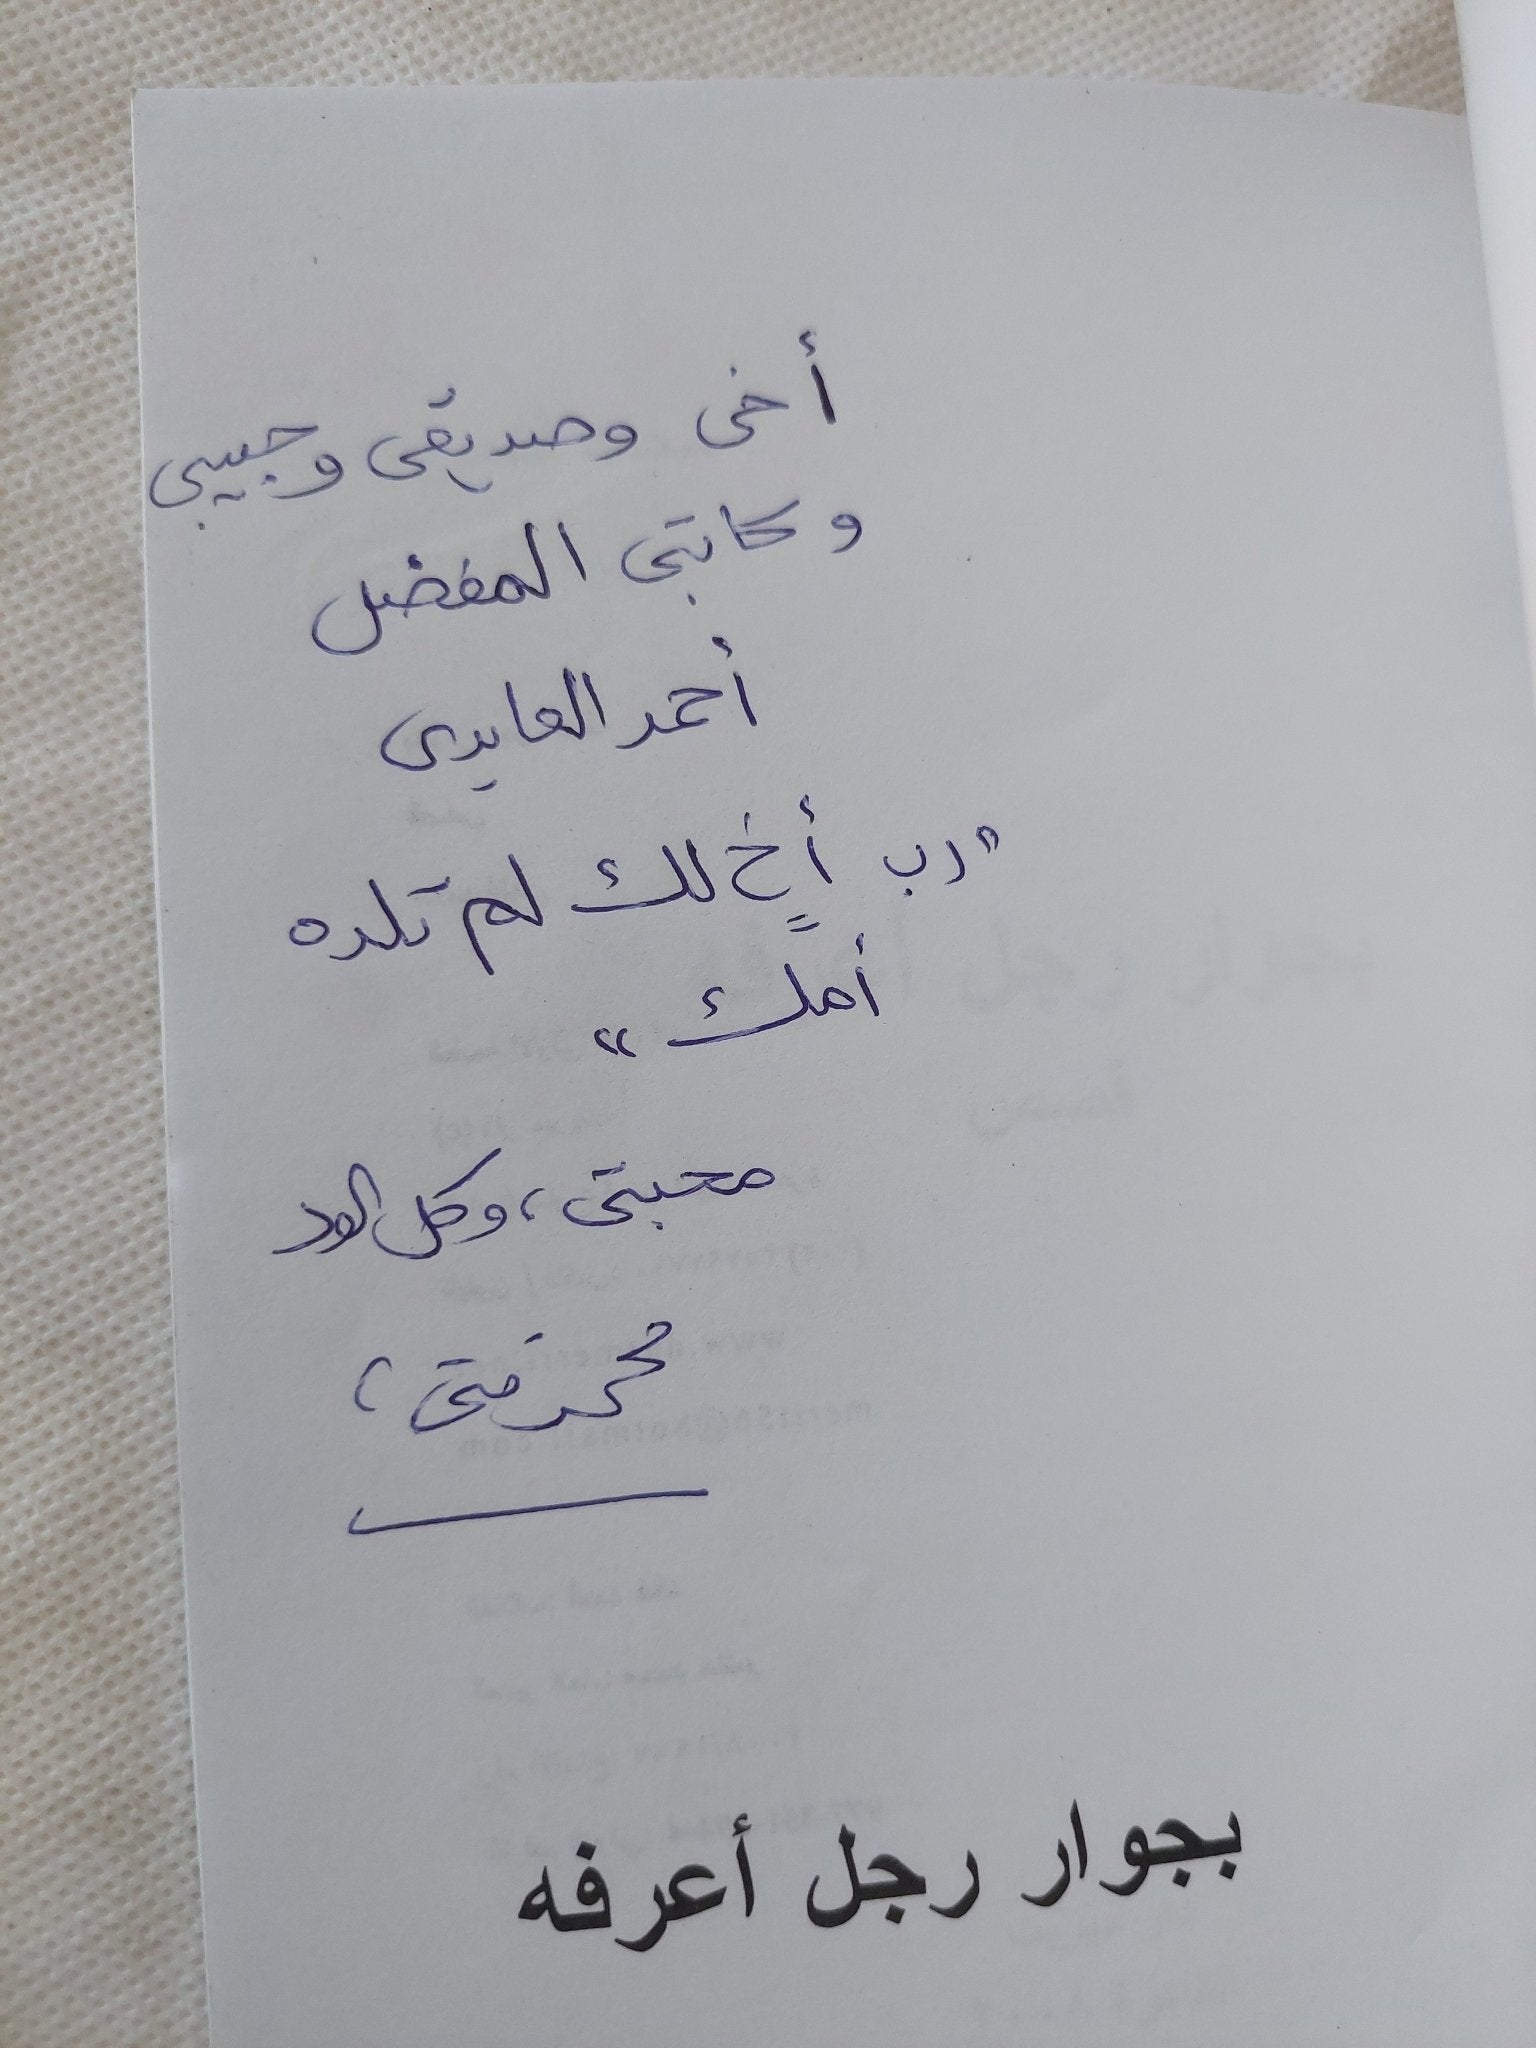 أخى وصديقى وحبيبى
وكاتبى المفضل
أحمد العايدى
"رب أخٍ لك لم تلده
أمك"
محبتى، وكل الود
محمد فتحى،
بجوار رجل أعرفه